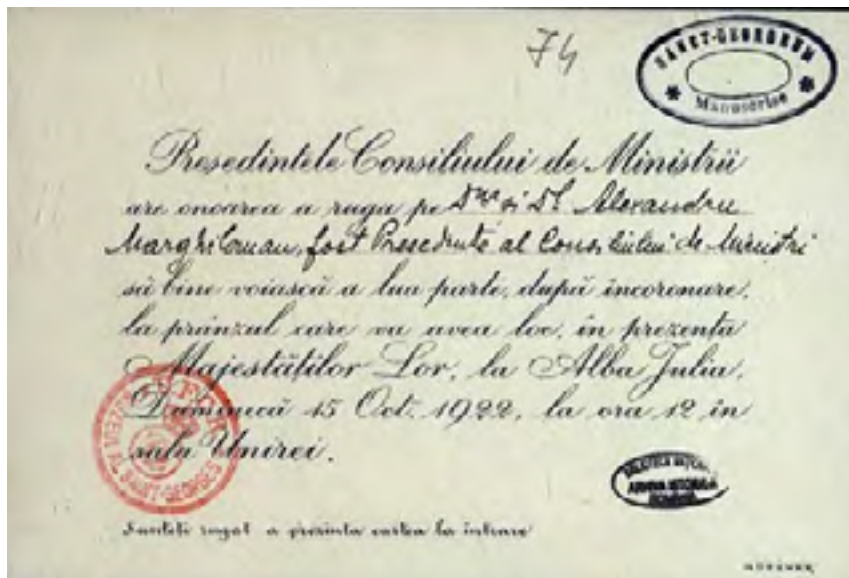 74
SANKT-GEORGEUM
Manuscrise
Presedintele Consiliului de Ministrii
are onoarea a ruga pe Dna si Dl Alexandru
Marghiloman, fost Presedinte al Consiliului de Ministri
să bine voiască a lua parte, după incoronare,
la prânzul care va avea loc, in prezenta
Majestăților Lor, la Alba Julia,
Duminică 15 Oct. 1922, la ora 12 in
sala Unirei.
SAINT-GEORGES
ARHIVA ISTORICA
Sunteti rugat a prezinta cartea la intrare